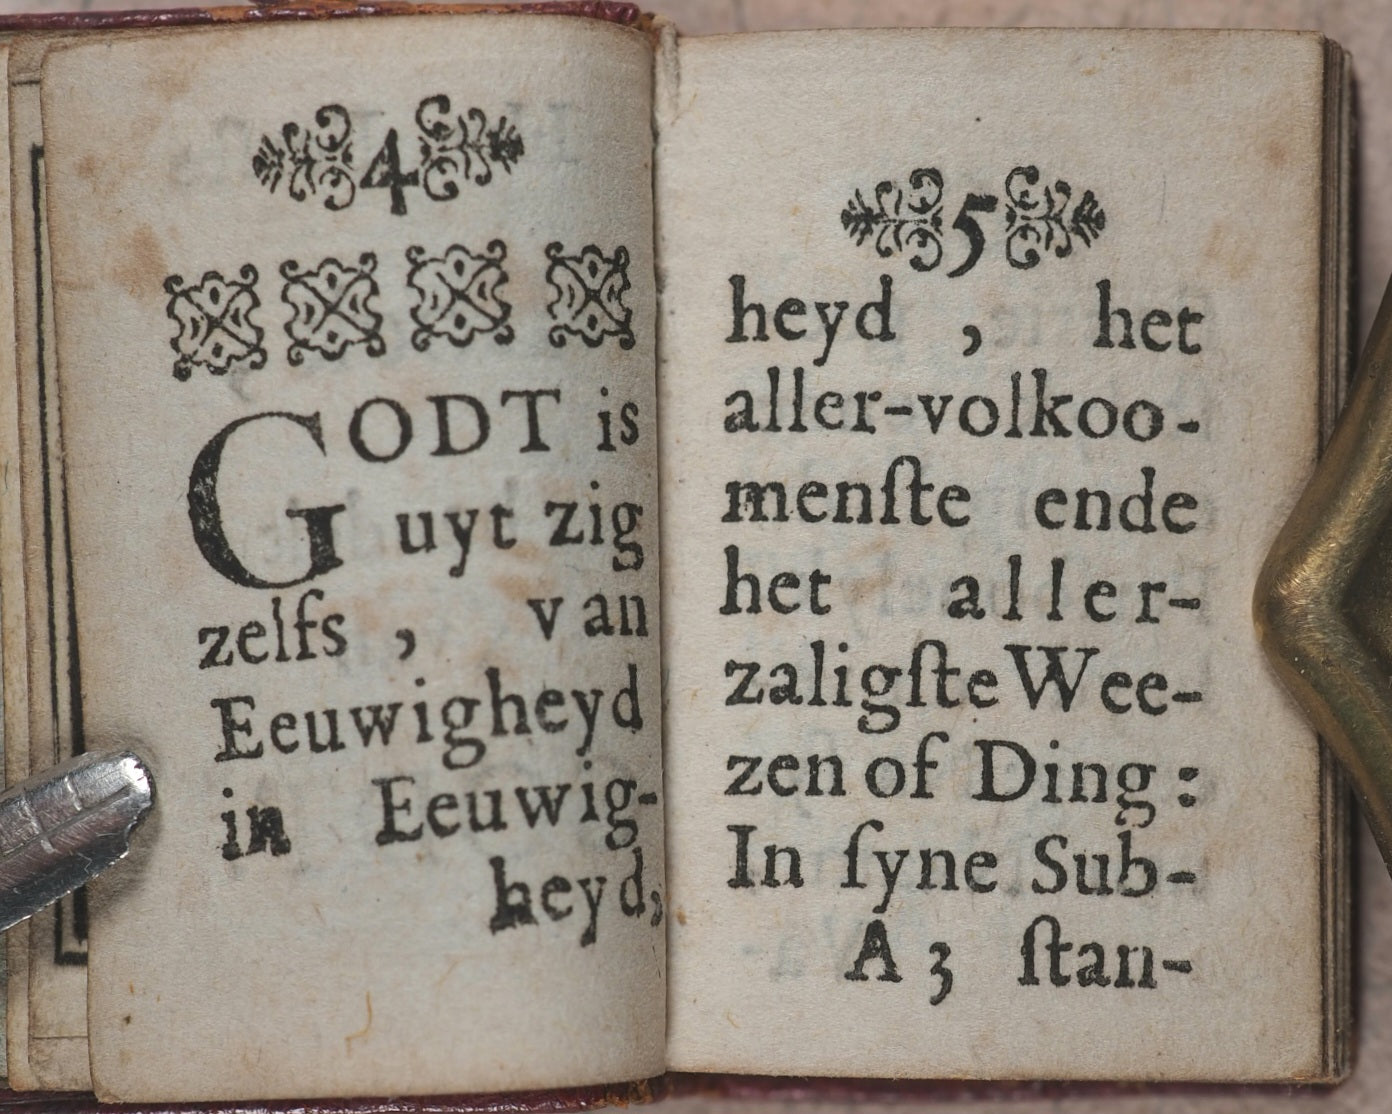 4
GODT is
uyt zig
zelfs , van
Eeuwigheyd
in Eeuwig-
heyd,
5
heyd , het
aller-volkoo-
menſte ende
het aller-
zaligſte Wee-
zen of Ding :
In ſyne Sub-
A 3 ſtan-